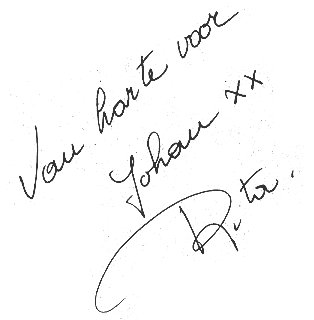 Van harte voor
Johan xx
Rita.